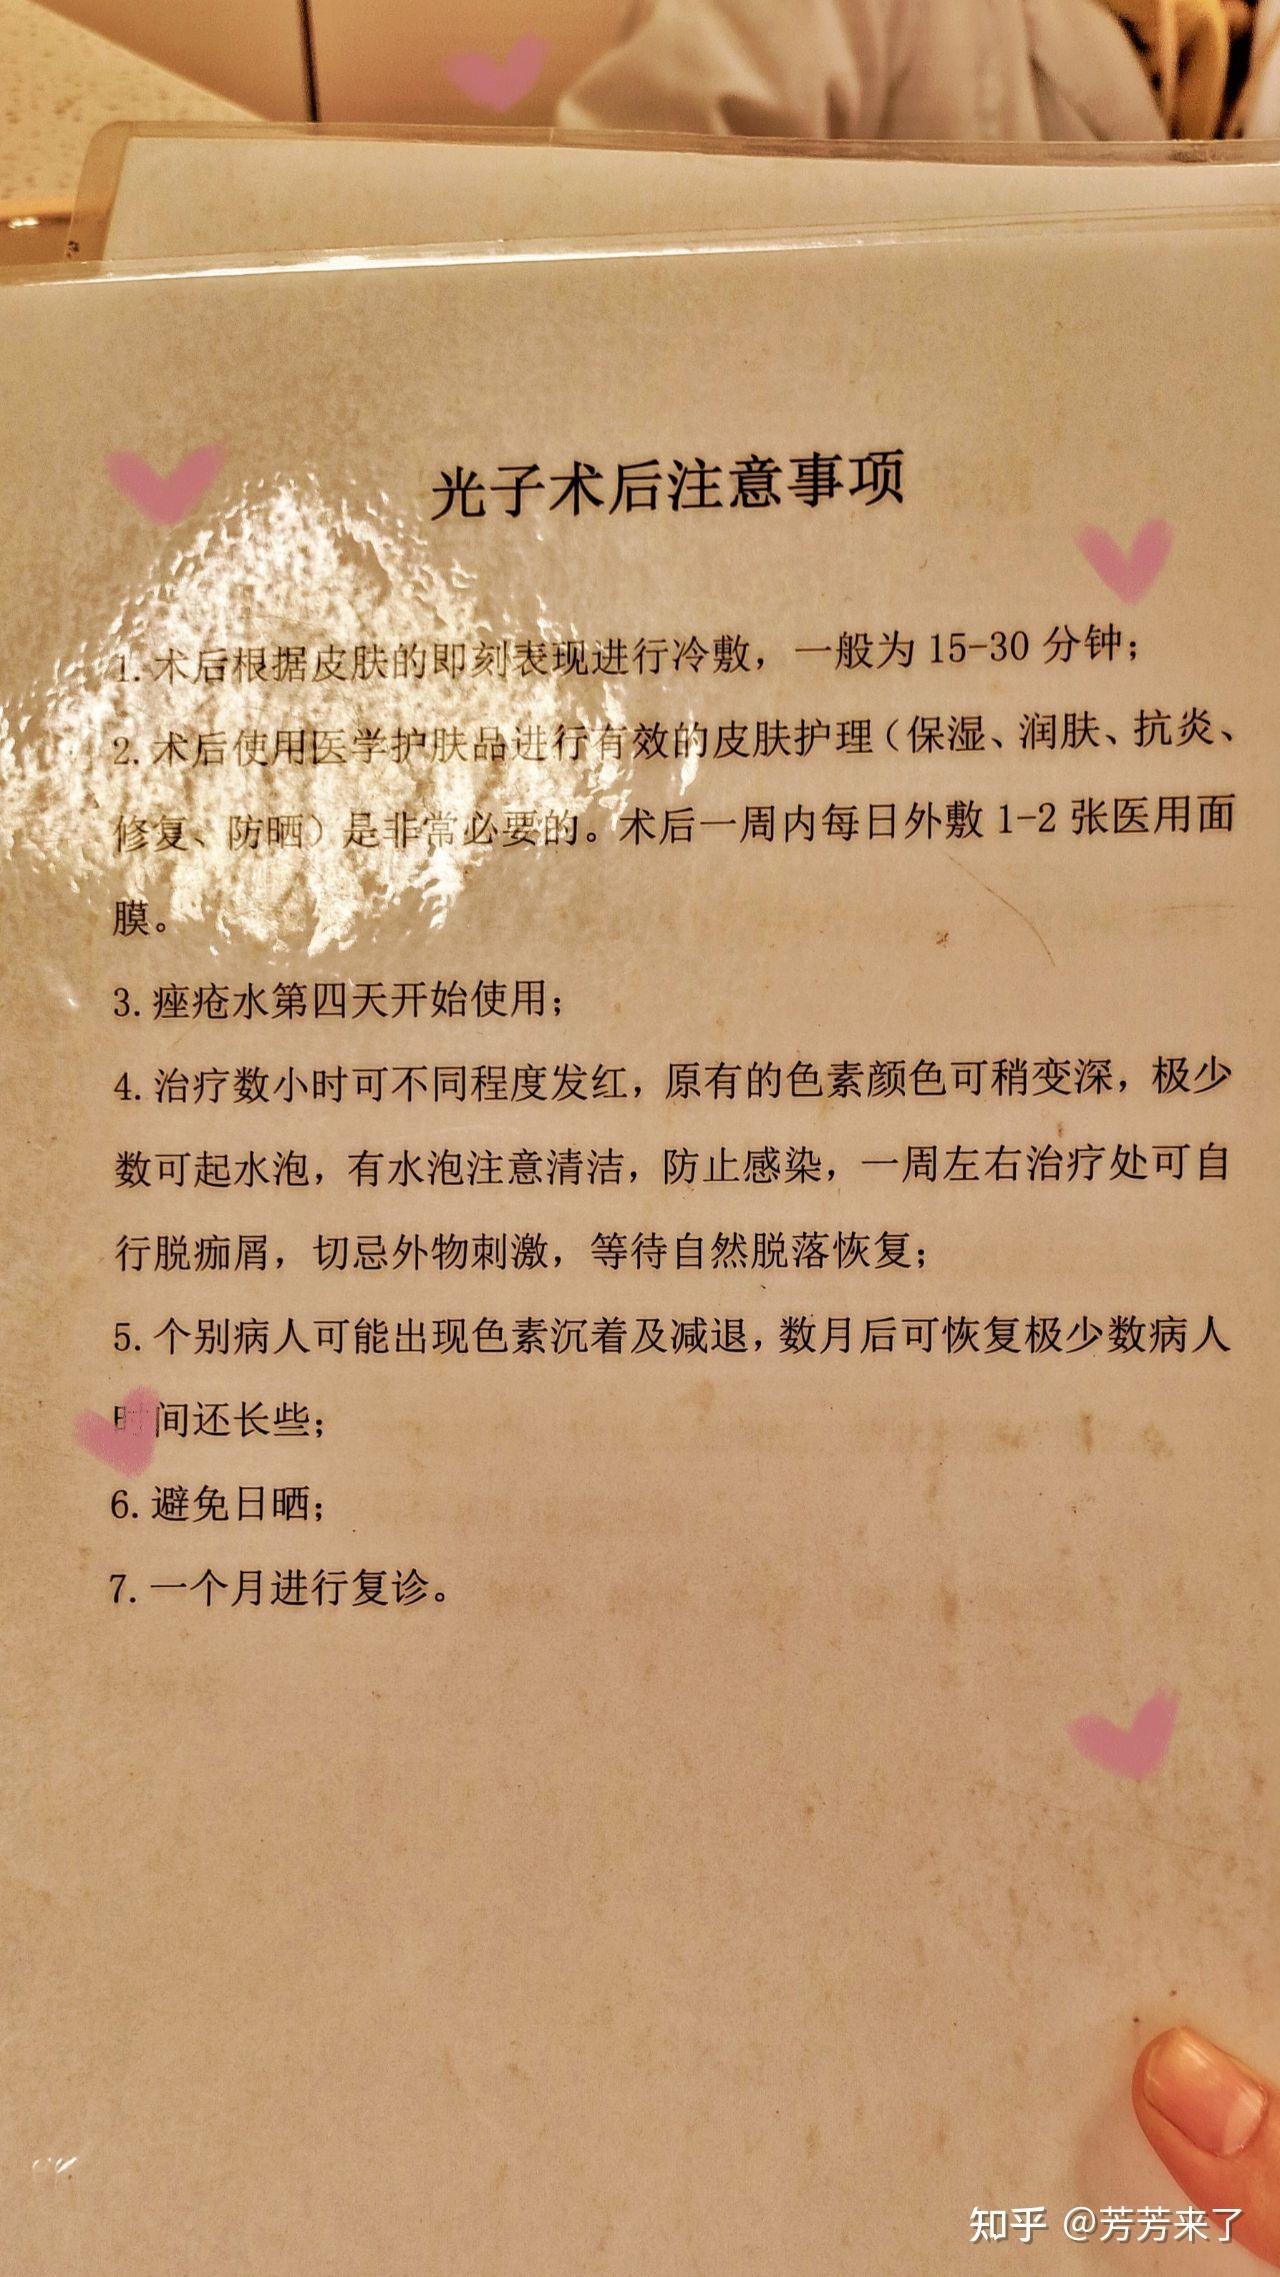 光子术后注意事项
1. 术后根据皮肤的即刻表现进行冷敷，一般为 15-30 分钟；
2. 术后使用医学护肤品进行有效的皮肤护理（保湿、润肤、抗炎、
修复、防晒）是非常必要的。术后一周内每日外敷 1-2 张医用面
膜。
3. 痤疮水第四天开始使用；
4. 治疗数小时可不同程度发红，原有的色素颜色可稍变深，极少
数可起水泡，有水泡注意清洁，防止感染，一周左右治疗处可自
行脱痂屑，切忌外物刺激，等待自然脱落恢复；
5. 个别病人可能出现色素沉着及减退，数月后可恢复极少数病人
时间还长些；
6. 避免日晒；
7. 一个月进行复诊。
知乎 @芳芳来了